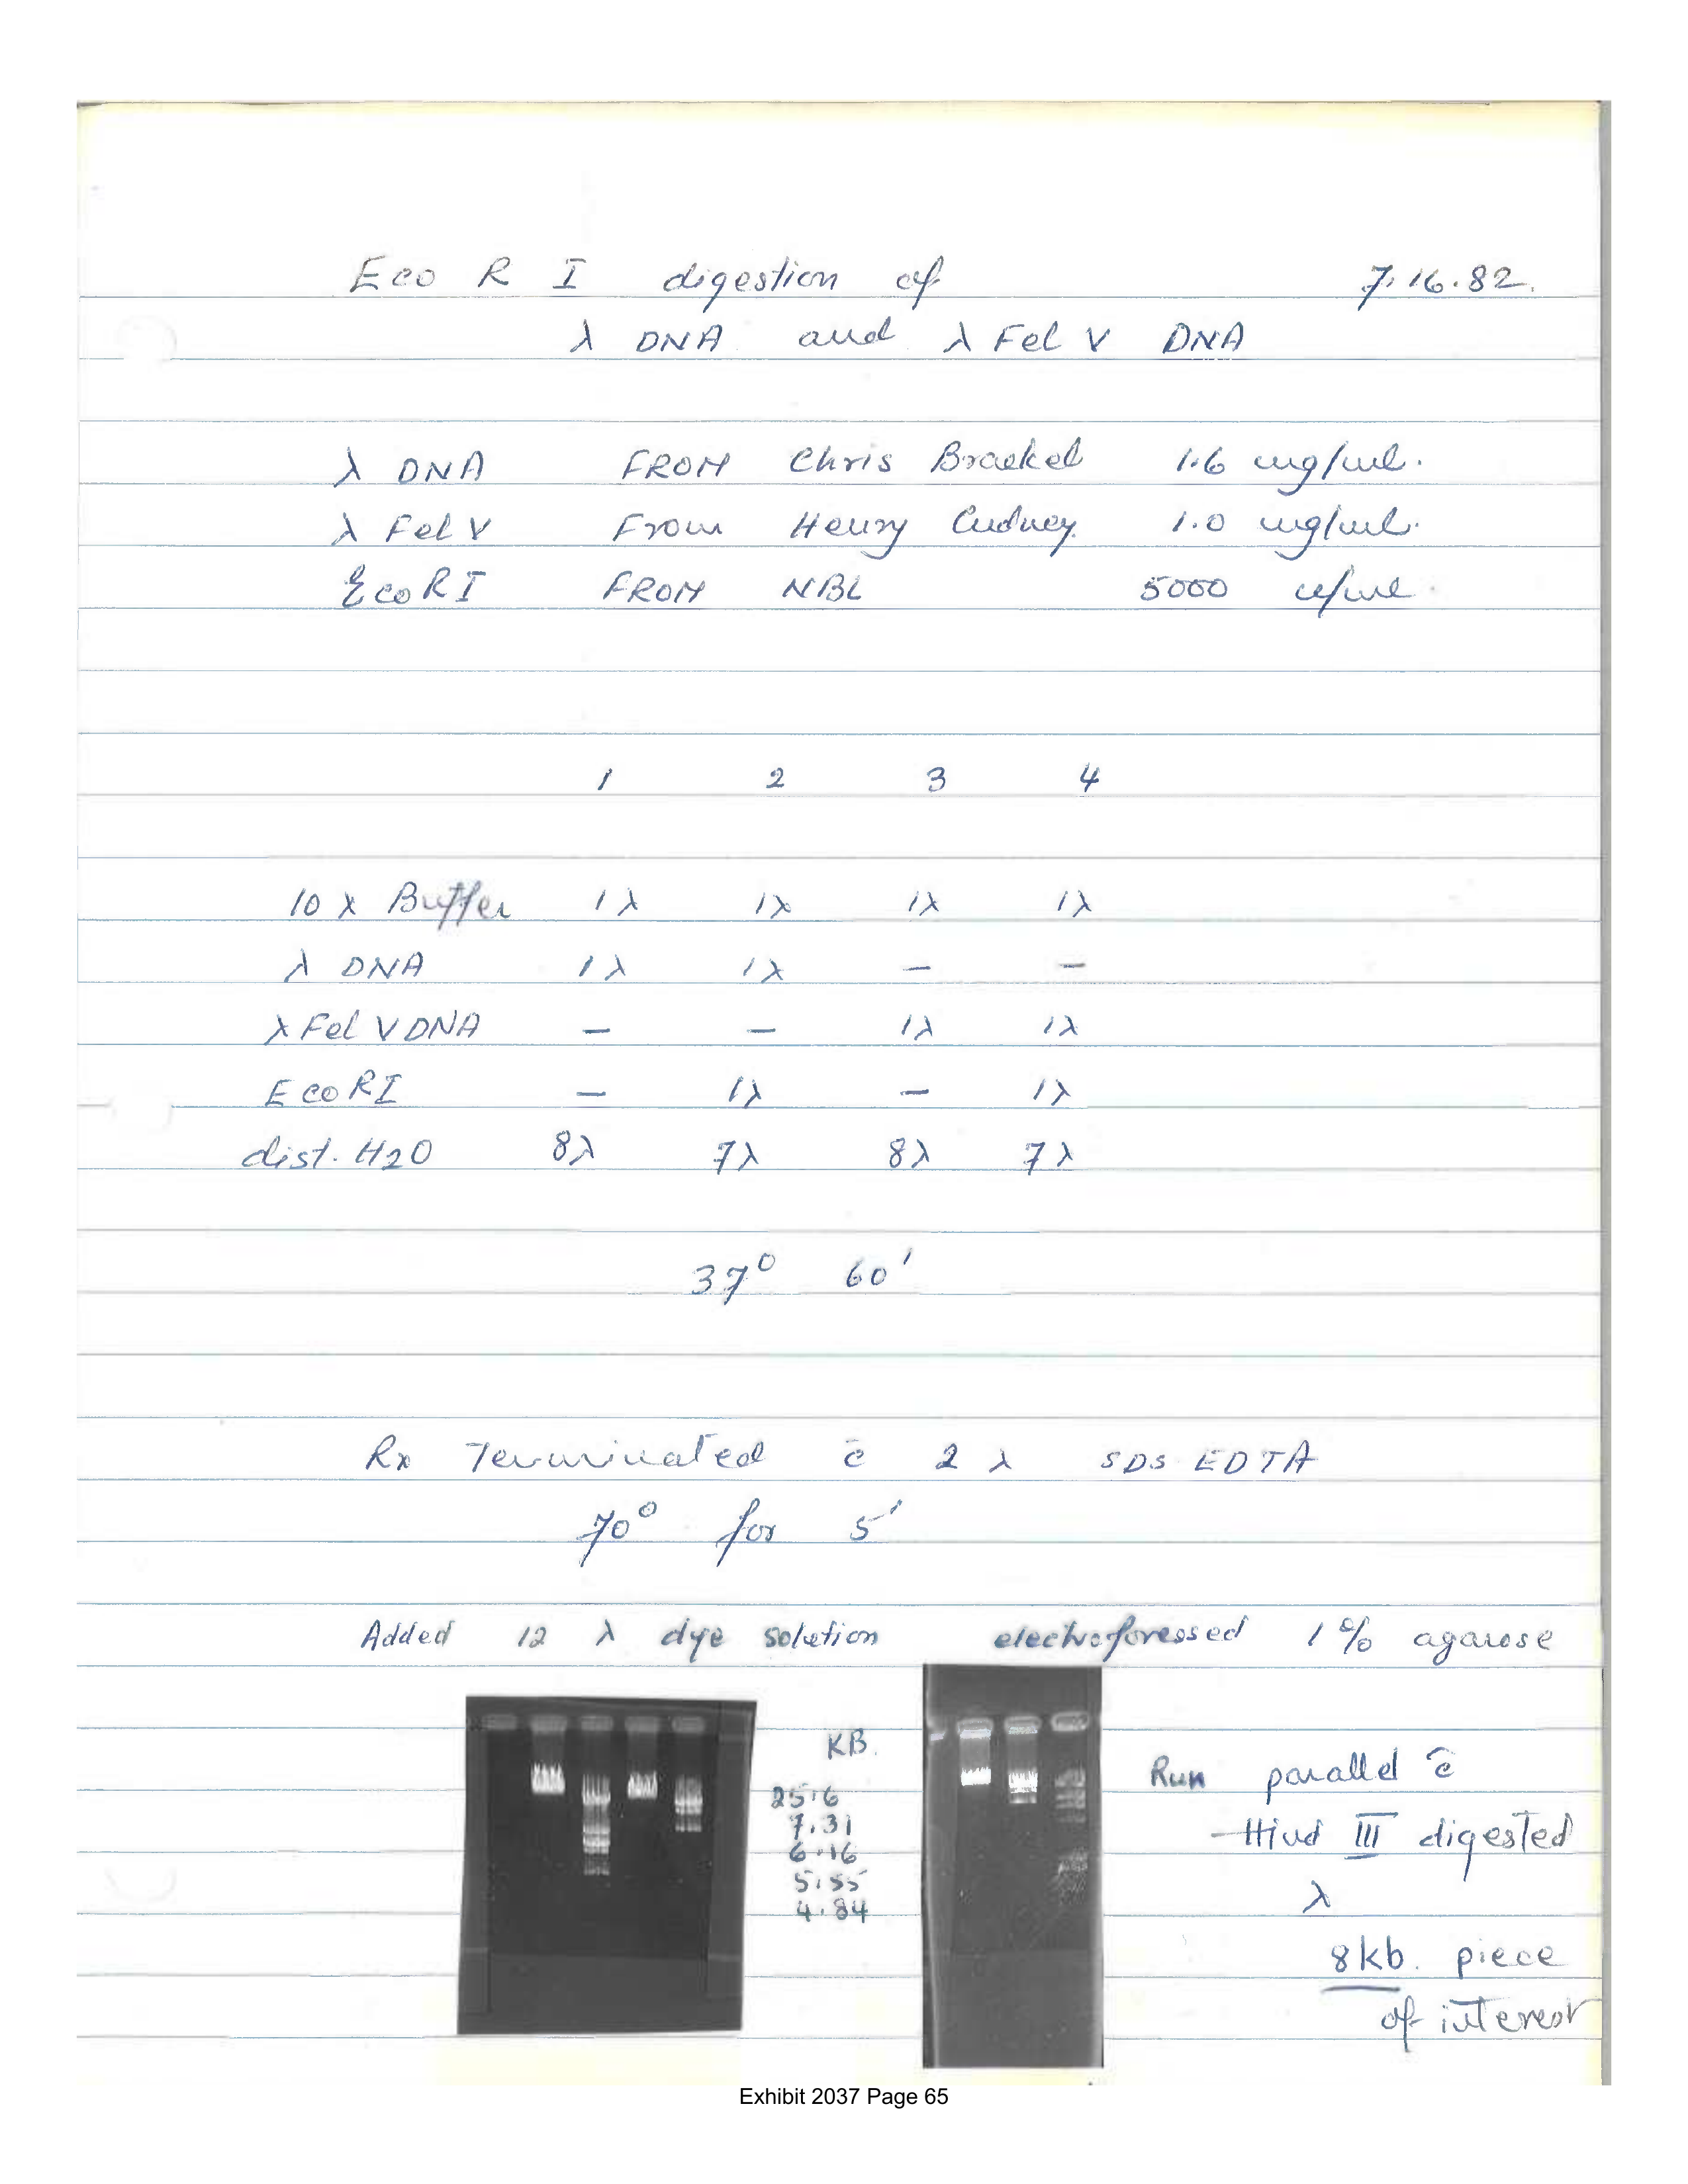 Eco R I digestion of 7.16.82.
λ DNA and λ Fel V DNA
λ DNA FROM Chris Brakel 1.6 mg/ml.
λ Fel V From Henry Cudney. 1.0 mg/ml.
EcoRI FROM NBL 5000 u/ml.
1 2 3 4
10 x Buffer 1λ 1λ 1λ 1λ
λ DNA 1λ 1λ — —
λ Fel V DNA — — 1λ 1λ
EcoRI — 1λ — 1λ
dist. H2O 8λ 7λ 8λ 7λ
37° 60'
Rx Terminated c̄ 2 λ SDS EDTA
70° for 5'
Added 12 λ dye solution electroforessed 1% agarose
KB.
25.6
7.31
6.16
5.55
4.84
Run parallel c̄
Hind III digested
λ
8kb. piece
of interest
Exhibit 2037 Page 65